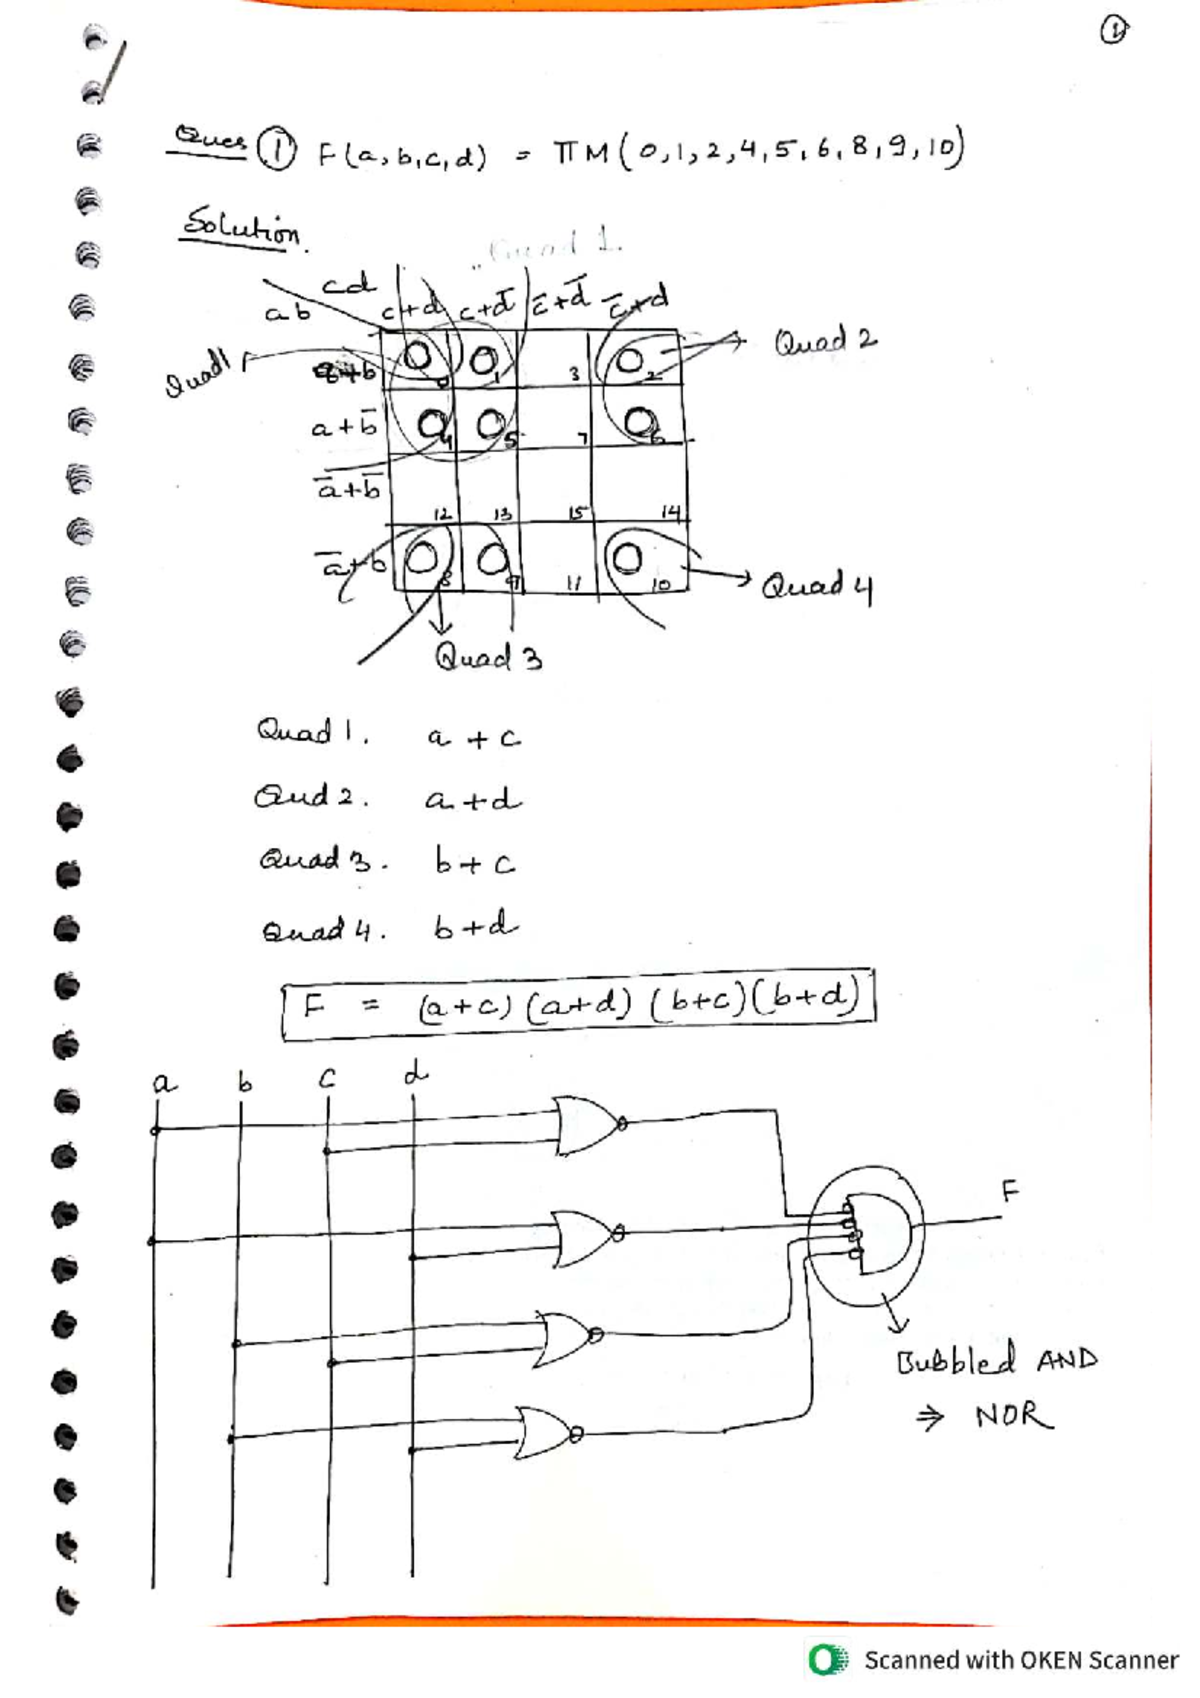 1
Ques 1 F(a,b,c,d) = πM(0,1,2,4,5,6,8,9,10)
Solution.
Quad 1.
cd
ab c+d c+d̅ c̅+d̅ c̅+d
Quad1 a+b 0 0 0 1 3 0 2 Quad 2
a+b̅ 0 4 0 5 7 0 6
a̅+b̅ 12 13 15 14
a̅+b 0 8 0 9 11 0 10 Quad 4
Quad 3
Quad 1. a + c
Qud 2. a+d
Quad 3. b+ c
Quad 4. b+d
F = (a+c)(a+d)(b+c)(b+d)
a b c d
F
Bubbled AND
⇒ NOR
Scanned with OKEN Scanner